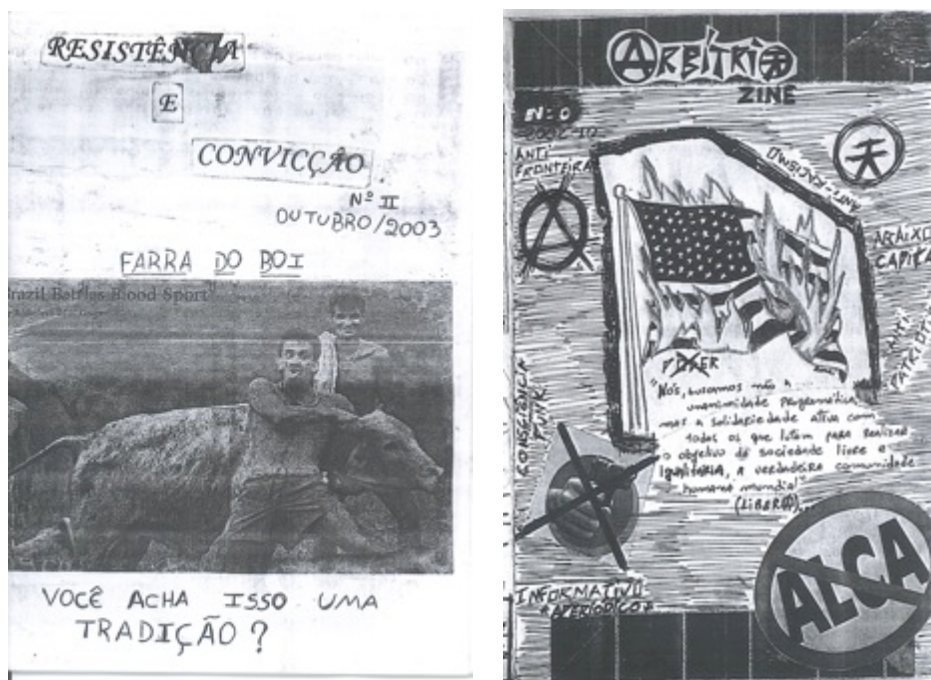 RESISTÊNCIA
E
CONVICÇÃO
Nº II
OUTUBRO/2003
FARRA DO BOI
Brazil Battles Blood Sport
VOCÊ ACHA ISSO UMA
TRADIÇÃO?
ARBÍTRIO
ZINE
Nº 0
ANTI
FRONTEIRA
ANTI-RACISMO
ABAIXO
CAPITA
ANTI
PATRIOTIS
PODER
"Nós, buscamos não a
unanimidade programática,
mas a solidariedade ativa com
todos os que lutam para realizar
o objetivo de sociedade livre e
Igualitária, a verdadeira comunidade
humana mundial"
CONSCIÊNCIA
PUNK
ALCA
INFORMATIVO
APERIÓDICO